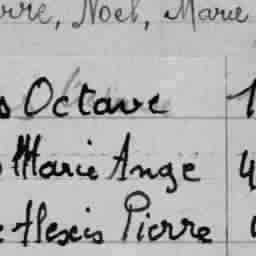 rre, Noel, Marie
s Octave 1
Marie Ange 4
e Alexis Pierre